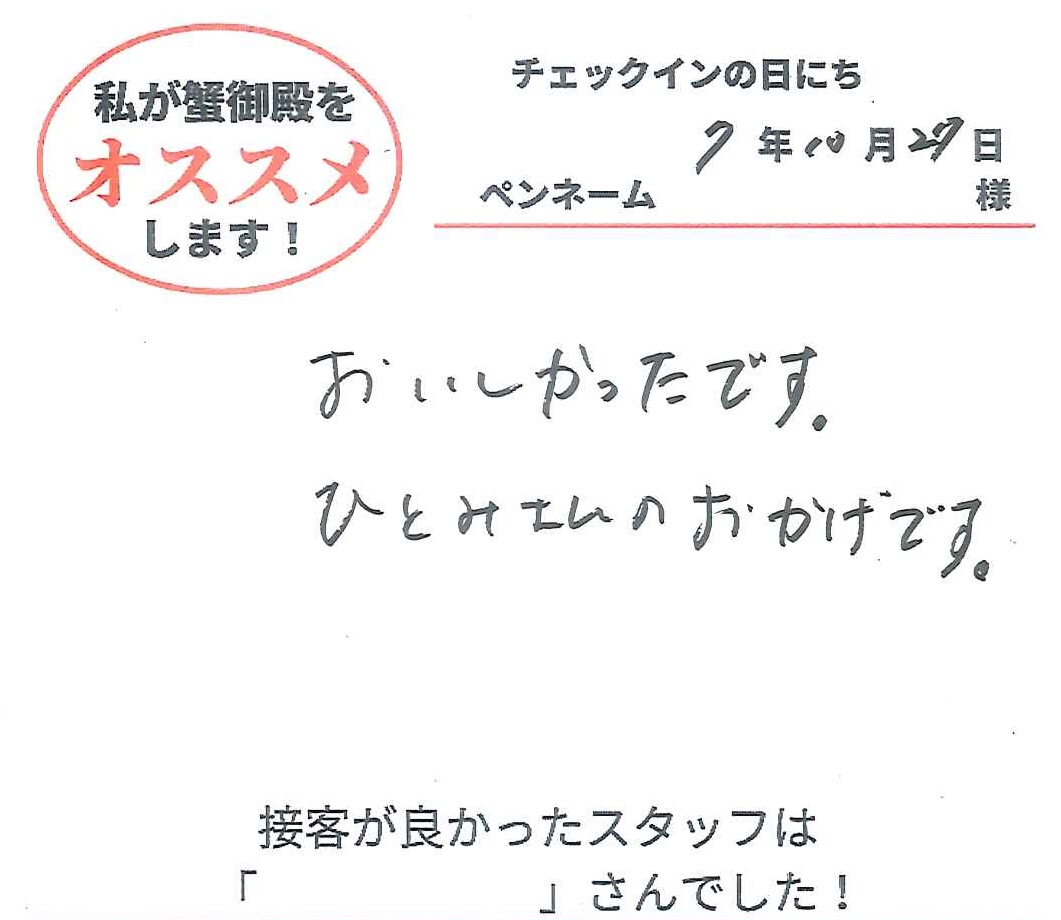 私が蟹御殿を
オススメ
します！
チェックインの日にち
7年10月27日
ペンネーム 様
おいしかったです。
ひとみさんのおかげです。
接客が良かったスタッフは
「 」さんでした！